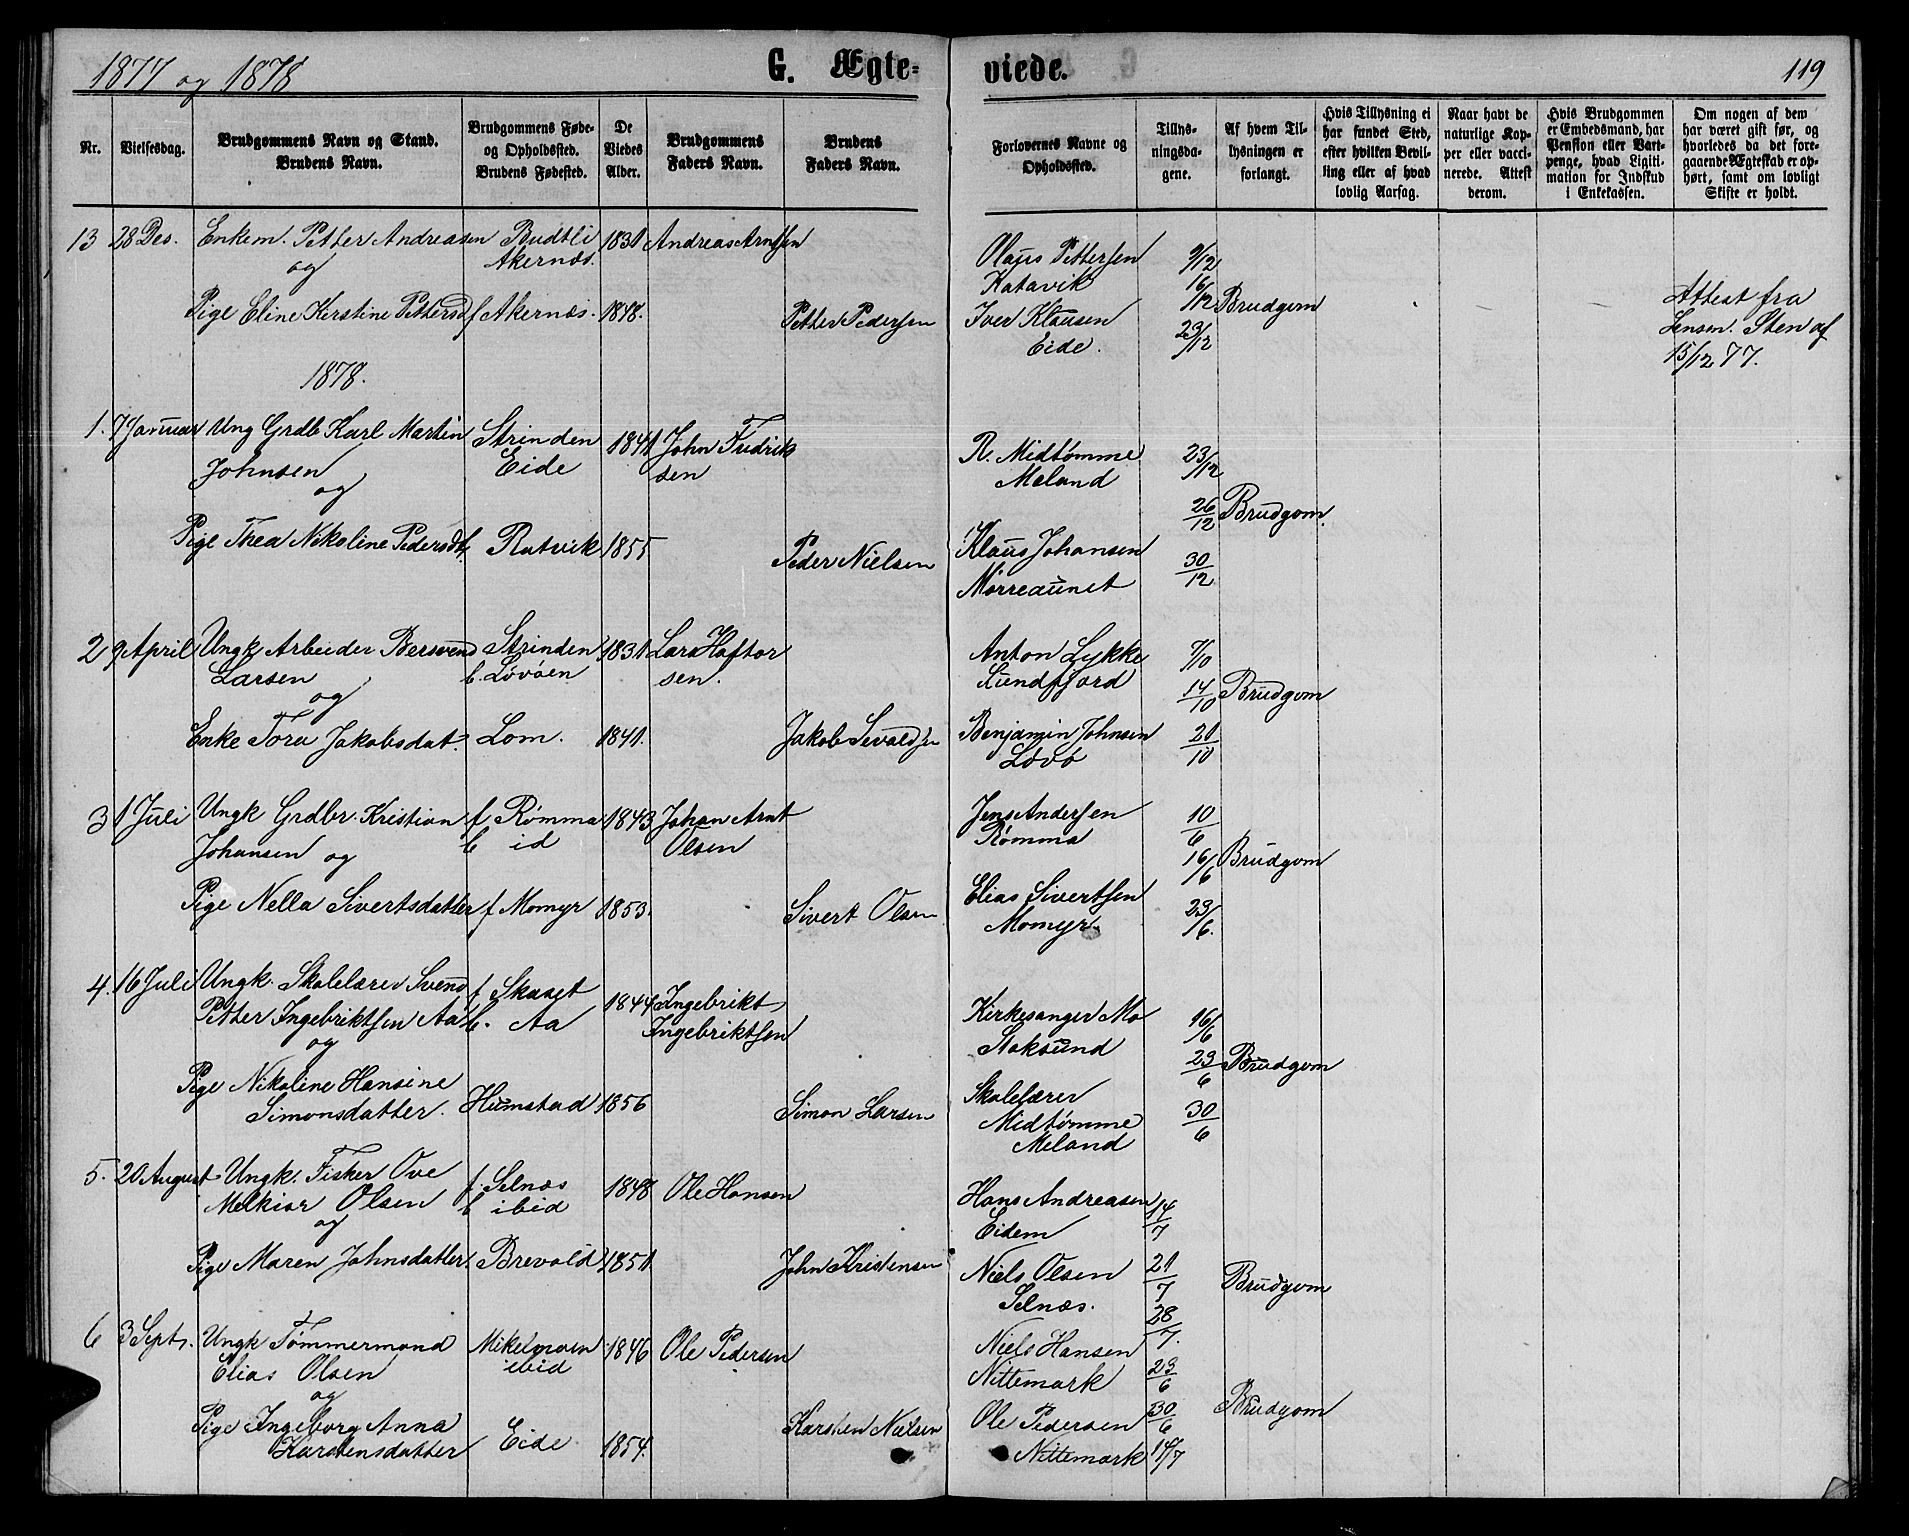 1877 og 1878
G. Ægte-
viede.
119
Nr.
Vielsesdag.
Brudgommens Navn og Stand.
Brudens Navn.
Brudgommens Føde-
og Opholdssted.
Brudens Fødested.
De
Viedes
Alder.
Brudgommens
Faders Navn.
Brudens
Faders Navn.
Forlovernes Navne og
Opholdssted.
Tillys-
ningsda-
gene.
Af hvem Til-
lysningen er
forlangt.
Hvis Tillysning ei
har fundet Sted,
efter hvilken Bevil-
ling eller af hvad
lovlig Aarsag.
Naar havt de
naturlige Kop-
per eller vacci-
nerede. Attest
derom.
Hvis Brudgommen
er Embedsmand, har
Pension eller Vart-
penge, hvad Ligiti-
mation for Indskud
i Enkekassen.
Om nogen af dem
har været gift før, og
hvorledes da det fore-
gaaende Ægteskab er op-
hørt, samt om lovligt
Skifte er holdt.
13 28 Des. Enkem. Petter Andreasen Budtli 1831 Andreas Arntsen
og Akernæs.
Pige Eline Kerstine Pettersd f Akernæs. 1848. Petter Pedersen
Olaus Pettersen 9/12
Katavik 16/12 Brudgom
Iver Klausen 23/12
Eide.
Attest fra
Lensm. Sten af
15/12 77.
1878.
1. 7 Januar Ung Grdb Karl Martin Strinden 1841 John Fredrik
Johnsen Eide sen
og
Pige Thea Nikoline Pedersdt. f. Ratvik 1855 Peder Nielsen
R. Midtømme 23/12
Meland
26/12 Brudgom.
Klaus Johansen 30/12
Mørreaunet
2 9 April Ungk Arbeider Bersvend Strinden 1831 Lars Haftor
Larsen b. Løvøen sen.
og
Enke Tora Jakobsdat. Lom. 1841. Jakob Sevaldsen
Anton Lykke 7/10
Sundfjord 14/10 Brudgom
Benjamin Johnsen 21/10
Løvø
3 1 Juli Ungk Grdbr. Kristian f Rømma 1843 Johan Arnt
Johansen og b id Olsen
Pige Nella Sivertsdatter f Momyr 1853. Sivert Olsen
Jens Andersen 10/6
Rømma 16/6 Brudgom
Elias Sivertsen 23/6.
Momyr
4. 16 Juli Ungk. Skolelærer Svend f Skaset 1844 Ingebrikt
Petter Ingebriktsen Aa b. Aa Ingebriktsen
og
Pige Nikoline Hansine
Simonsdatter. Humstad 1856 Simon Larsen
Kirkesanger Mo 16/6
Stoksund 23/6 Brudgom
Skolelærer
Midtømme 30/6
Meland
5. 20 August Ungk. Fisker Ove f. Selnæs 1848 Ole Hansen
Melkior Olsen b ibid
og
Pige Maren Johnsdatter. Brevold 1851 John Kristensen
Hans Andreasen 14/7
Eidem
Niels Olsen 21/7 Brudgom
Selnæs. 28/7.
6 3 Sept. Ungk Tømmermand Mikelmoen 1846 Ole Pedersen
Elias Olsen ibid
og
Pige Ingeborg Anna
Karstensdatter Eide 1854. Karsten Nielsen
Niels Hansen
Nittemark 23/6
Ole Pedersen 30/6 Brudgom
Nittemark 14/7